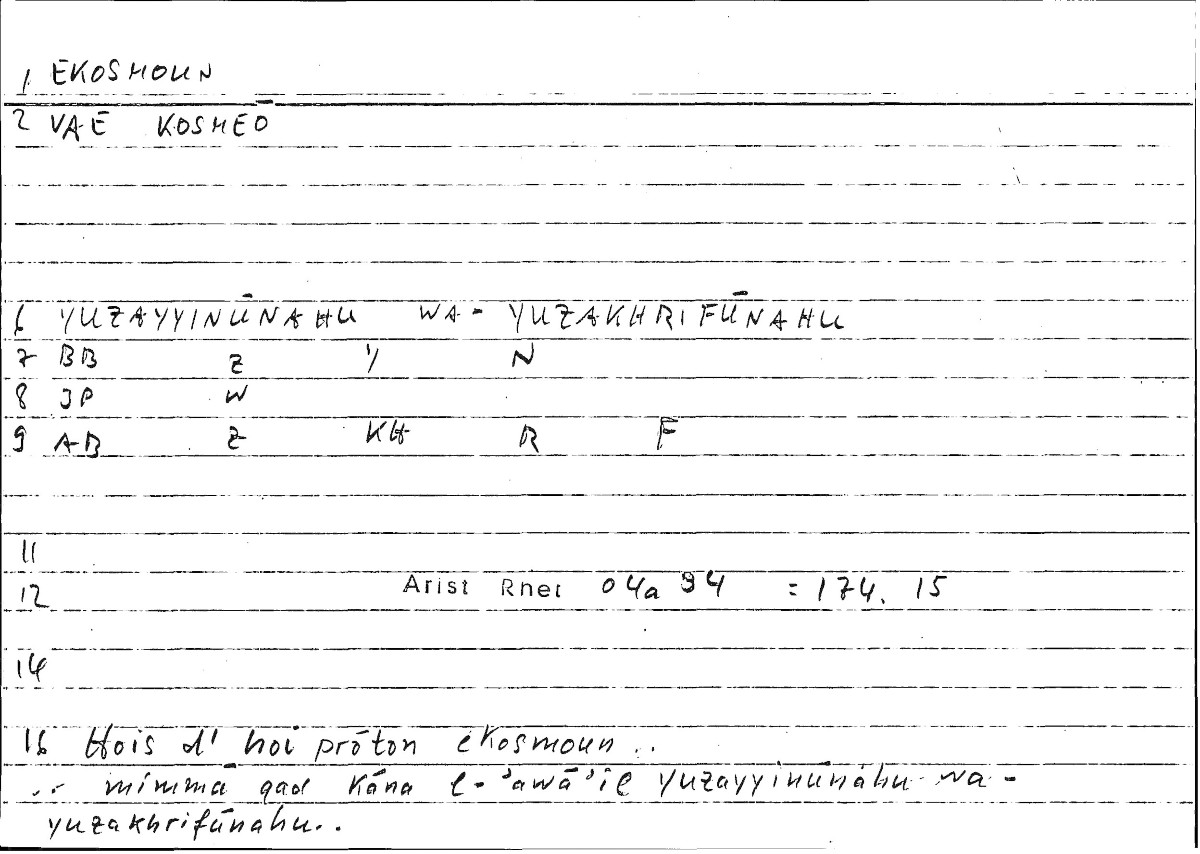 1 EKOSMOUN
2 VAE KOSMEŌ
6 YUZAYYINŪNAHU WA- YUZAKHRIFŪNAHU
7 BB Z Y N
8 JP W
9 AB Z KH R F
11
12 Arist Rhet 04a 34 = 174. 15
14
16 Hois d' hoi prōton ekosmoun ..
.. mimmā qad kāna l-ʾawāʾil yuzayyinūnahu wa-
yuzakhrifūnahu..